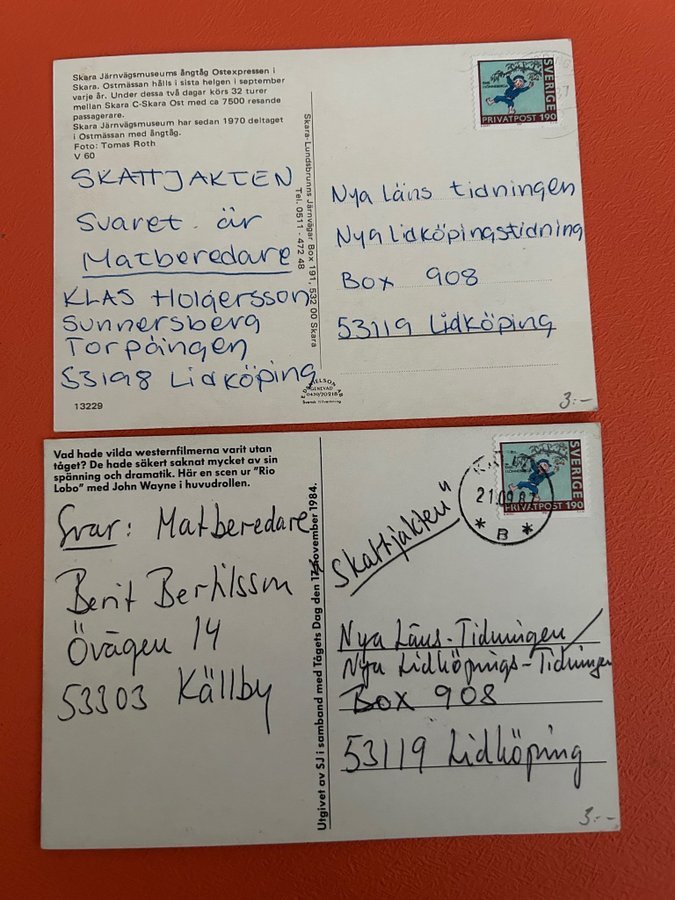 Skara Järnvägsmuseums ångtåg Ostexpressen i
Skara. Ostmässan hålls i sista helgen i september
varje år. Under dessa två dagar körs 32 turer
mellan Skara C-Skara Ost med ca 7500 resande
passagerare.
Skara Järnvägsmuseum har sedan 1970 deltaget
i Ostmässan med ångtåg.
Foto: Tomas Roth
V 60
SKATTJAKTEN
Svaret är
Matberedare
KLAS Holgersson
Sunnersberg
Torpängen
53198 Lidköping
13229
Skara-Lundsbrunns Järnvägar Box 191, 532 00 Skara
Tel. 0511-472 48
SVERIGE
PRIVATPOST 190
Nya Läns tidningen
Nya Lidköpingstidning
Box 908
53119 Lidköping
3:-
Vad hade vilda westernfilmerna varit utan
tåget? De hade säkert saknat mycket av sin
spänning och dramatik. Här en scen ur "Rio
Lobo" med John Wayne i huvudrollen.
Svar: Matberedare
Berit Bertilsson
Övägen 14
53303 Källby
Utgivet av SJ i samband med Tågets Dag den 17 november 1984.
SVERIGE
PRIVATPOST 190
21.09.87
B
Skattjakten"
Nya Läns-Tidningen/
Nya Lidköpings-Tidningen
Box 908
53119 Lidköping
3:-